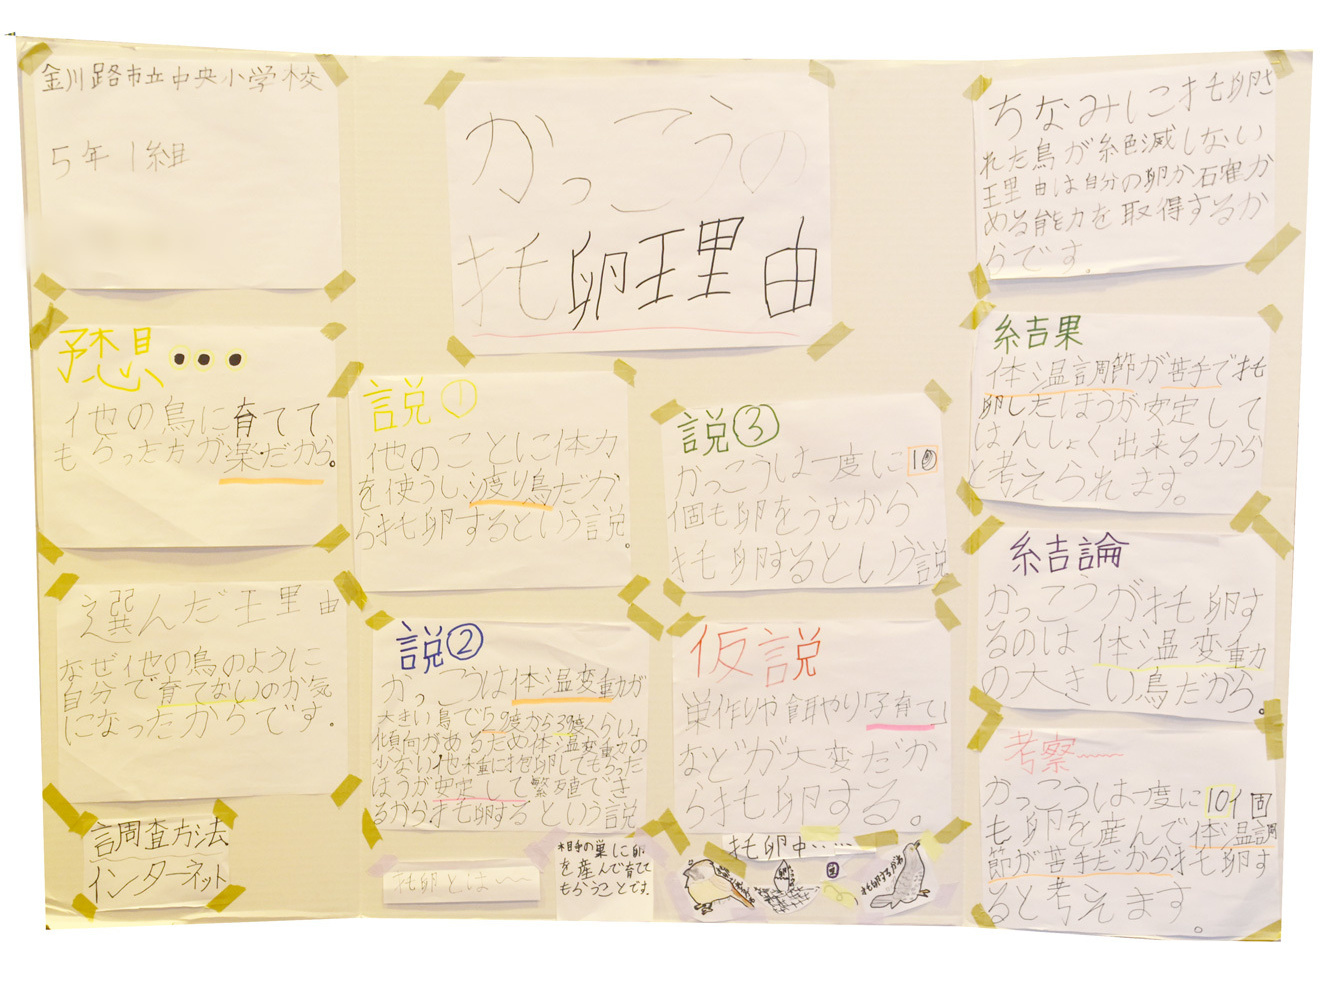 金川路市立中央小学校
5年1組
予想・・・
他の鳥に育てて
もらった方が楽だから。
選んだ理由
なぜ他の鳥のように
自分で育てないのか気
になったからです。
調査方法
インターネット
かっこうの
托卵理由
説①
他のことに体力
を使うし渡り鳥だか
ら托卵するという説。
説②
かっこうは体温変動が
大きい鳥で29度から39度くらい。
傾向があるため体温変動の
少ない他種に托卵してもらった
ほうが安定して繁殖でき
るから托卵するという説
説③
かっこうは一度に10
個も卵をうむから
托卵するという説
仮説
巣作りや餌やり「子育て」
などが大変だか
ら托卵する。
托卵とは〜〜
相手の巣に卵
を産んで育て
もらうことです。
托卵中・・・・・
托卵するがね
ちなみに托卵さ
れた鳥が絶滅しない
理由は自分の卵か石確か
める能力を取得するか
らです。
結果
体温調節が苦手で托
卵したほうが安定して
はんしょく出来るから
と考えられます。
結論
かっこうが托卵す
るのは体温変動
の大きい鳥だから。
考察〜〜
かっこうは一度に10個
も卵を産んで体温調
節が苦手だから托卵す
ると考えます。